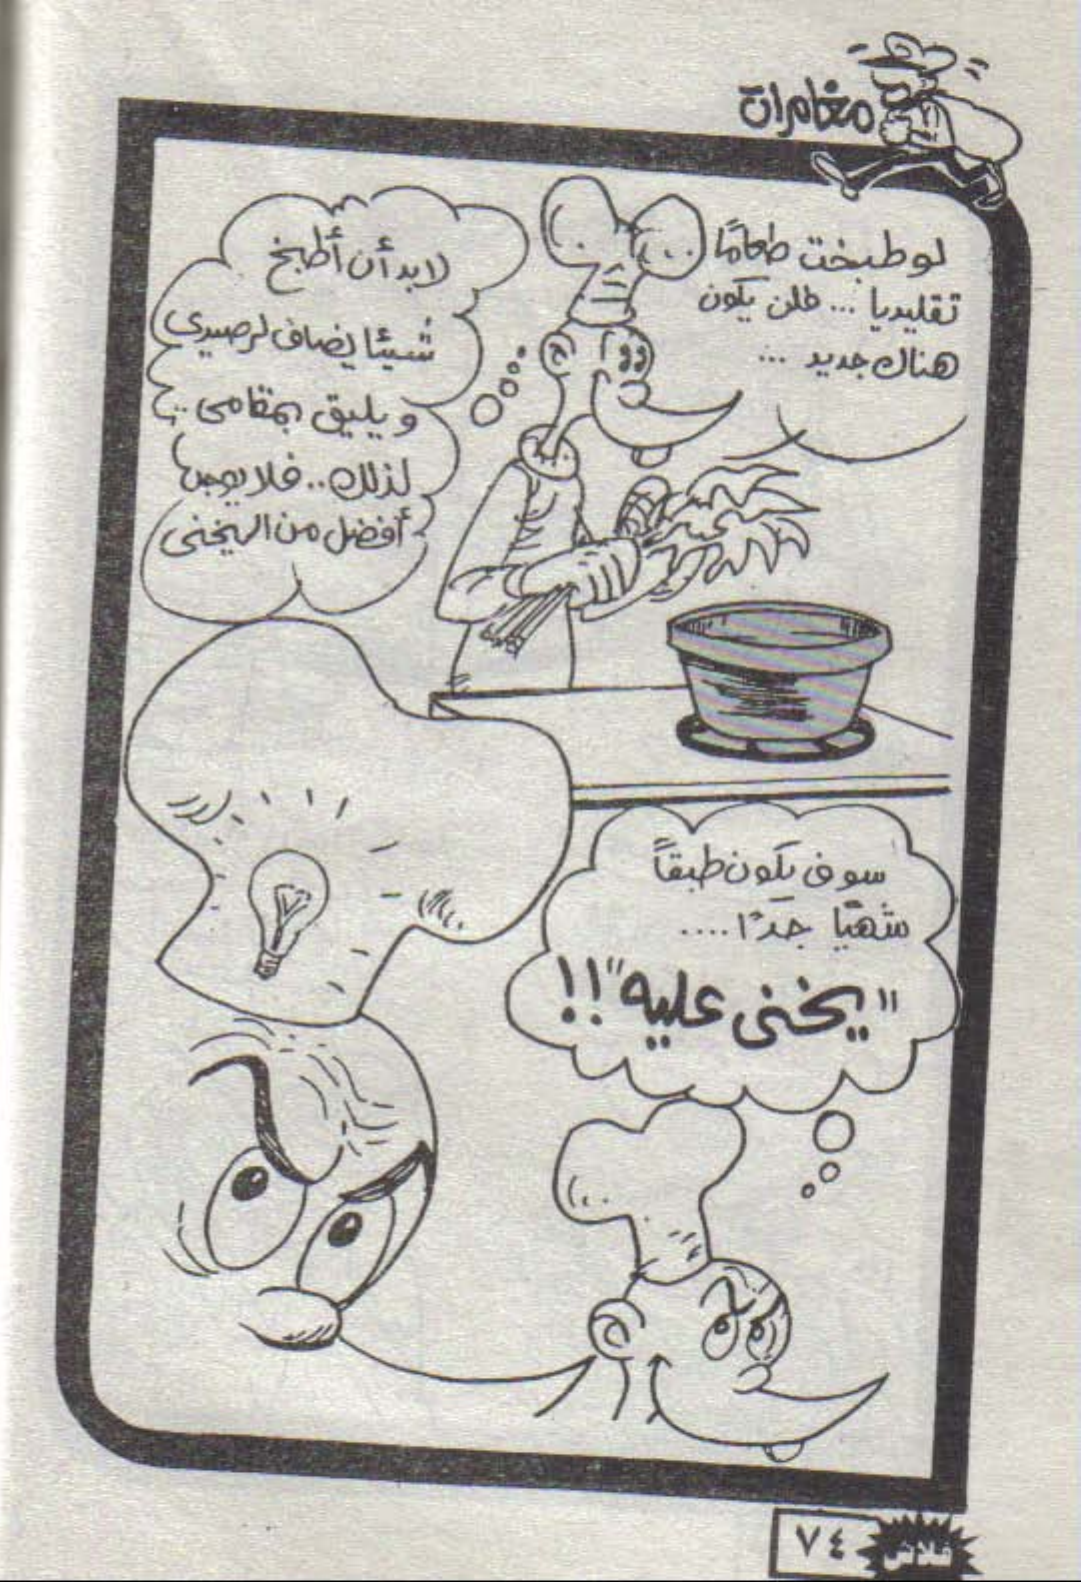 مغامرات
لو طبخت طعامًا
تقليديا ... فلن يكون
هناك جديد ...
لا بد أن أطبخ
شيئا يضاف لرصيدي
و يليق بمقامى ..
لذلك .. فلا يوجد
أفضل من اليخنى
سوف يكون طبقاً
شهيًا جدًا ....
"يخنى عليه"!!
فلاش
٧٤